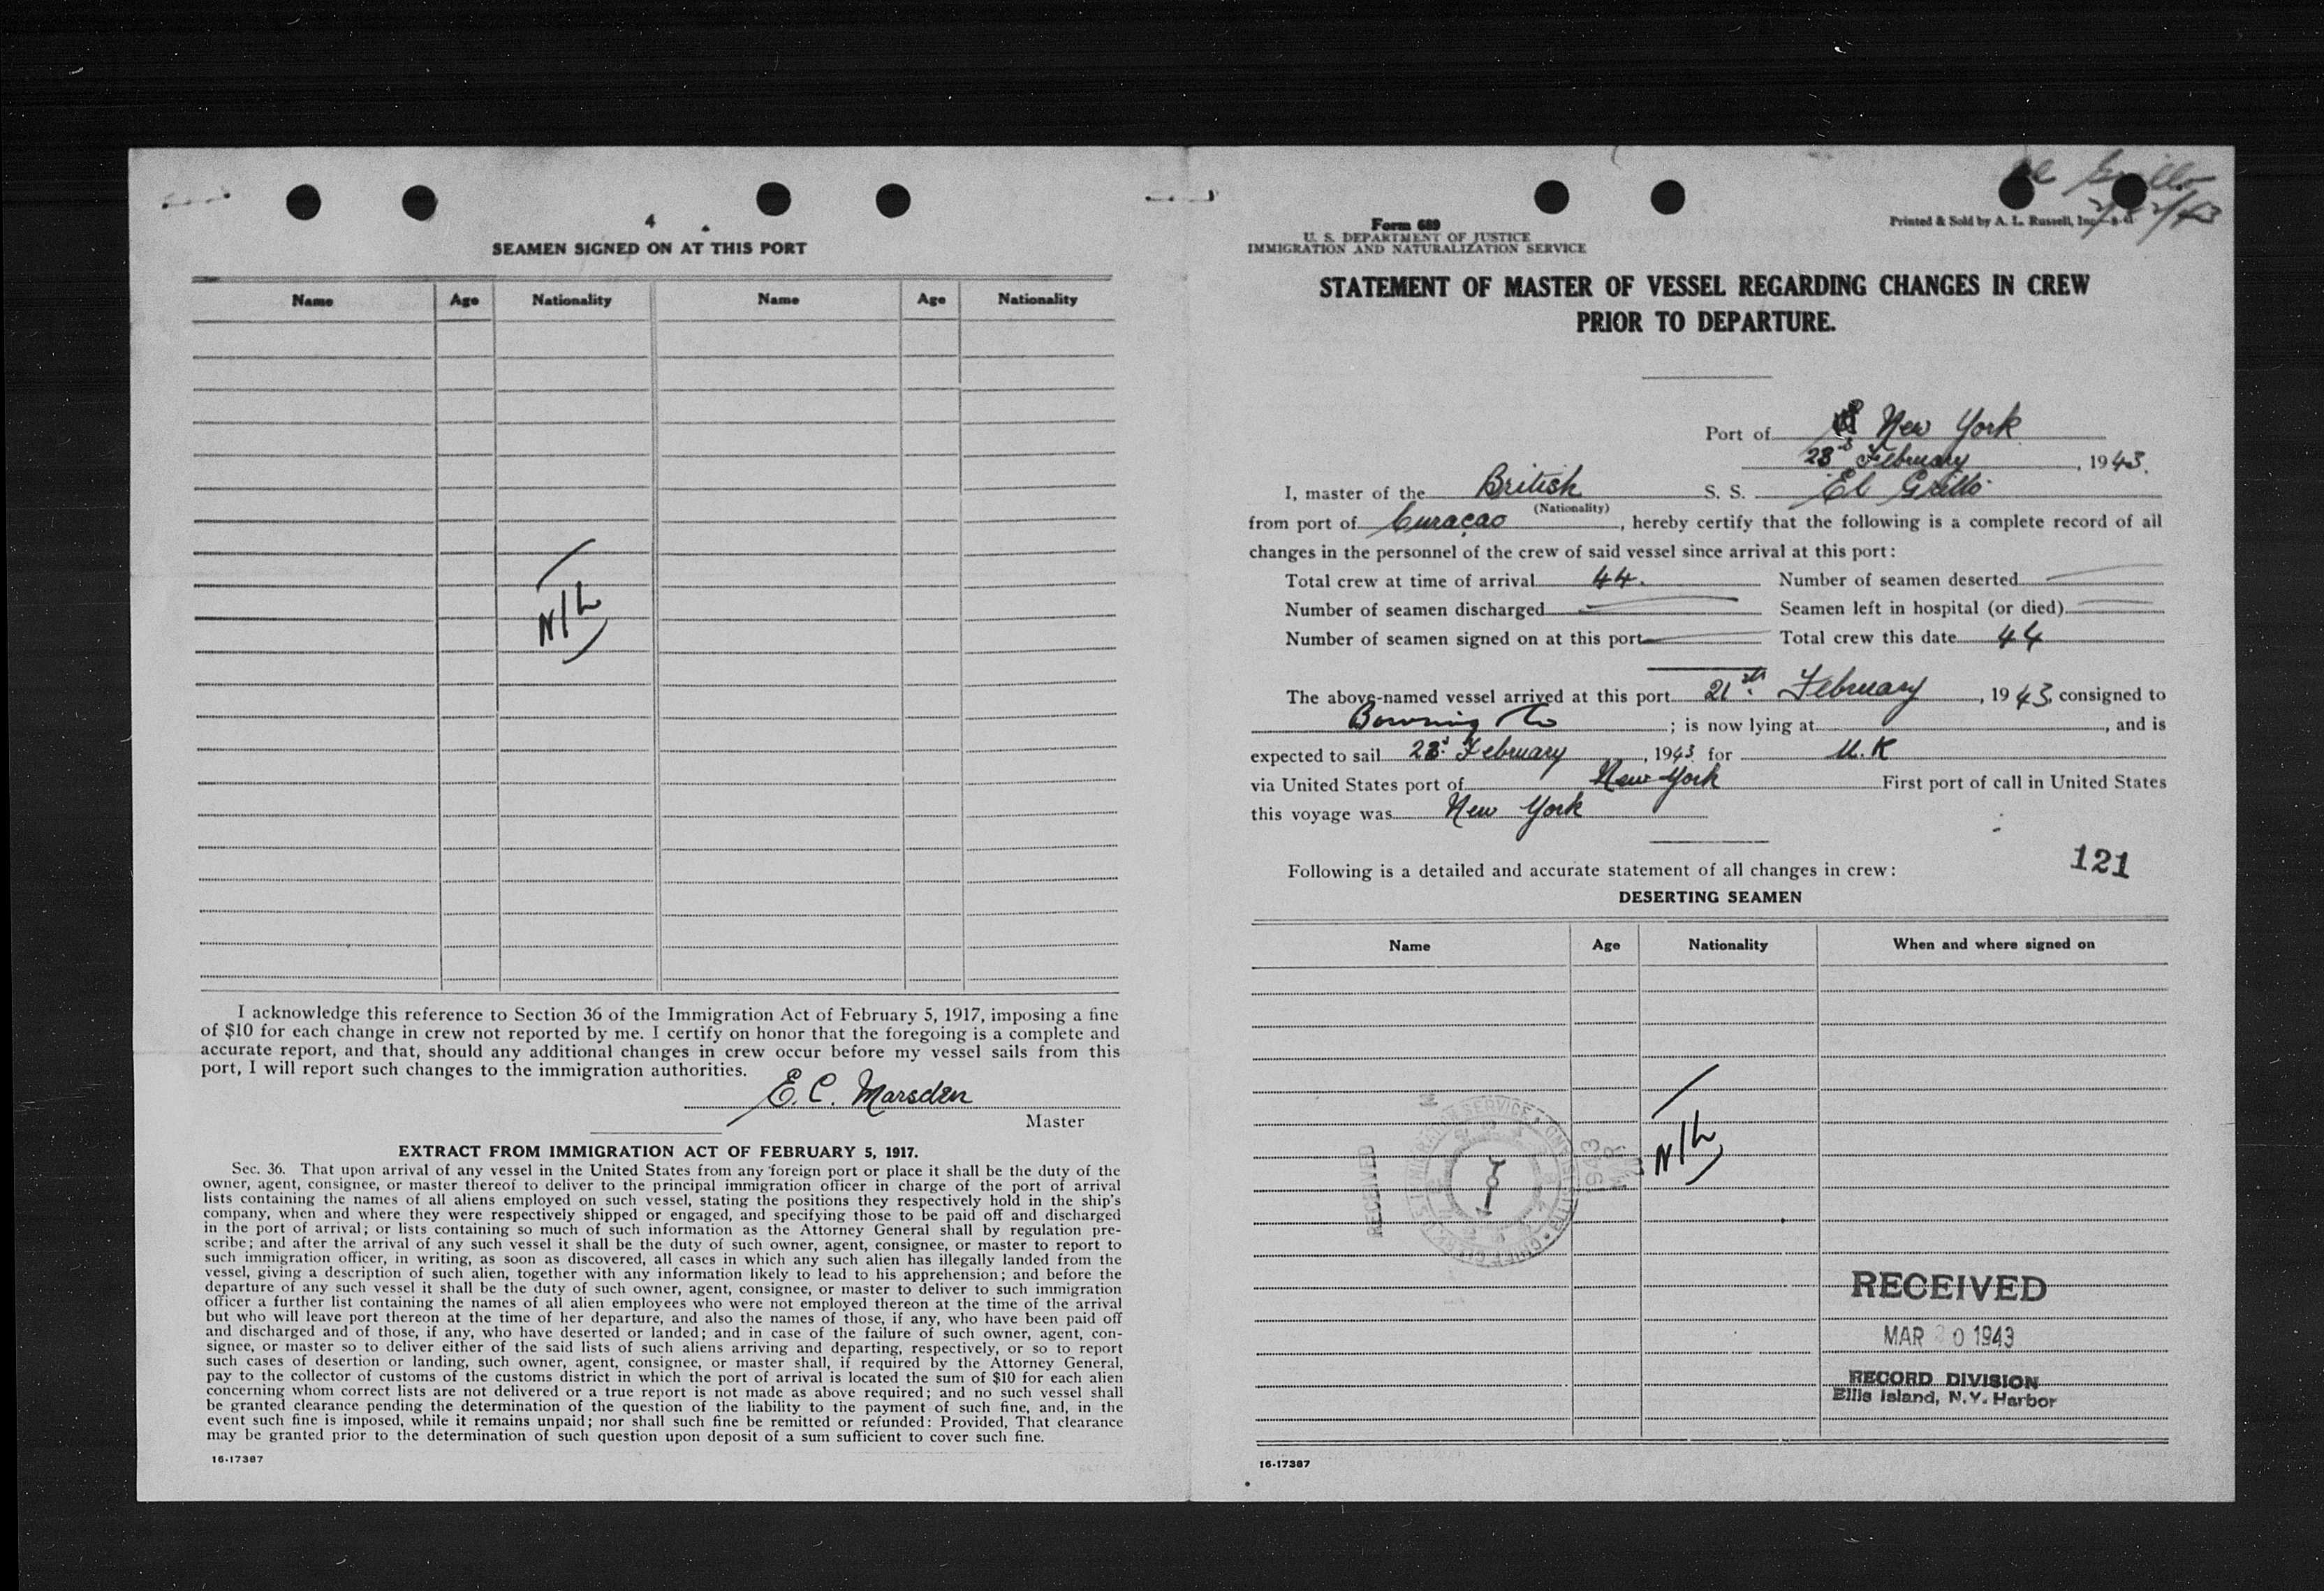 4
SEAMEN SIGNED ON AT THIS PORT
Name Age Nationality Name Age Nationality
Nil
I acknowledge this reference to Section 36 of the Immigration Act of February 5, 1917, imposing a fine
of $10 for each change in crew not reported by me. I certify on honor that the foregoing is a complete and
accurate report, and that, should any additional changes in crew occur before my vessel sails from this
port, I will report such changes to the immigration authorities.
E. C. Marsden
Master
EXTRACT FROM IMMIGRATION ACT OF FEBRUARY 5, 1917.
Sec. 36. That upon arrival of any vessel in the United States from any foreign port or place it shall be the duty of the
owner, agent, consignee, or master thereof to deliver to the principal immigration officer in charge of the port of arrival
lists containing the names of all aliens employed on such vessel, stating the positions they respectively hold in the ship's
company, when and where they were respectively shipped or engaged, and specifying those to be paid off and discharged
in the port of arrival; or lists containing so much of such information as the Attorney General shall by regulation pre-
scribe; and after the arrival of any such vessel it shall be the duty of such owner, agent, consignee, or master to report to
such immigration officer, in writing, as soon as discovered, all cases in which any such alien has illegally landed from the
vessel, giving a description of such alien, together with any information likely to lead to his apprehension; and before the
departure of any such vessel it shall be the duty of such owner, agent, consignee, or master to deliver to such immigration
officer a further list containing the names of all alien employees who were not employed thereon at the time of the arrival
but who will leave port thereon at the time of her departure, and also the names of those, if any, who have been paid off
and discharged and of those, if any, who have deserted or landed; and in case of the failure of such owner, agent, con-
signee, or master so to deliver either of the said lists of such aliens arriving and departing, respectively, or so to report
such cases of desertion or landing, such owner, agent, consignee, or master shall, if required by the Attorney General,
pay to the collector of customs of the customs district in which the port of arrival is located the sum of $10 for each alien
concerning whom correct lists are not delivered or a true report is not made as above required; and no such vessel shall
be granted clearance pending the determination of the question of the liability to the payment of such fine, and, in the
event such fine is imposed, while it remains unpaid; nor shall such fine be remitted or refunded: Provided, That clearance
may be granted prior to the determination of such question upon deposit of a sum sufficient to cover such fine.
16-17387
El Grillo
Form 689
U. S. DEPARTMENT OF JUSTICE
IMMIGRATION AND NATURALIZATION SERVICE
Printed & Sold by A. L. Russell, Inc.
STATEMENT OF MASTER OF VESSEL REGARDING CHANGES IN CREW
PRIOR TO DEPARTURE.
Port of New York
February, 1943.
I, master of the British S. S. El Grillo
(Nationality)
from port of Curaçao, hereby certify that the following is a complete record of all
changes in the personnel of the crew of said vessel since arrival at this port:
Total crew at time of arrival 44. Number of seamen deserted
Number of seamen discharged Seamen left in hospital (or died)
Number of seamen signed on at this port Total crew this date 44
The above-named vessel arrived at this port 21st February, 1943, consigned to
Bowring Co; is now lying at, and is
expected to sail February, 1943 for U.K
via United States port of New York First port of call in United States
this voyage was New York
Following is a detailed and accurate statement of all changes in crew:
121
DESERTING SEAMEN
Name Age Nationality When and where signed on
Nil
RECEIVED
1943
RECEIVED
MAR 1943
RECORD DIVISION
Ellis Island, N.Y. Harbor
16-17387